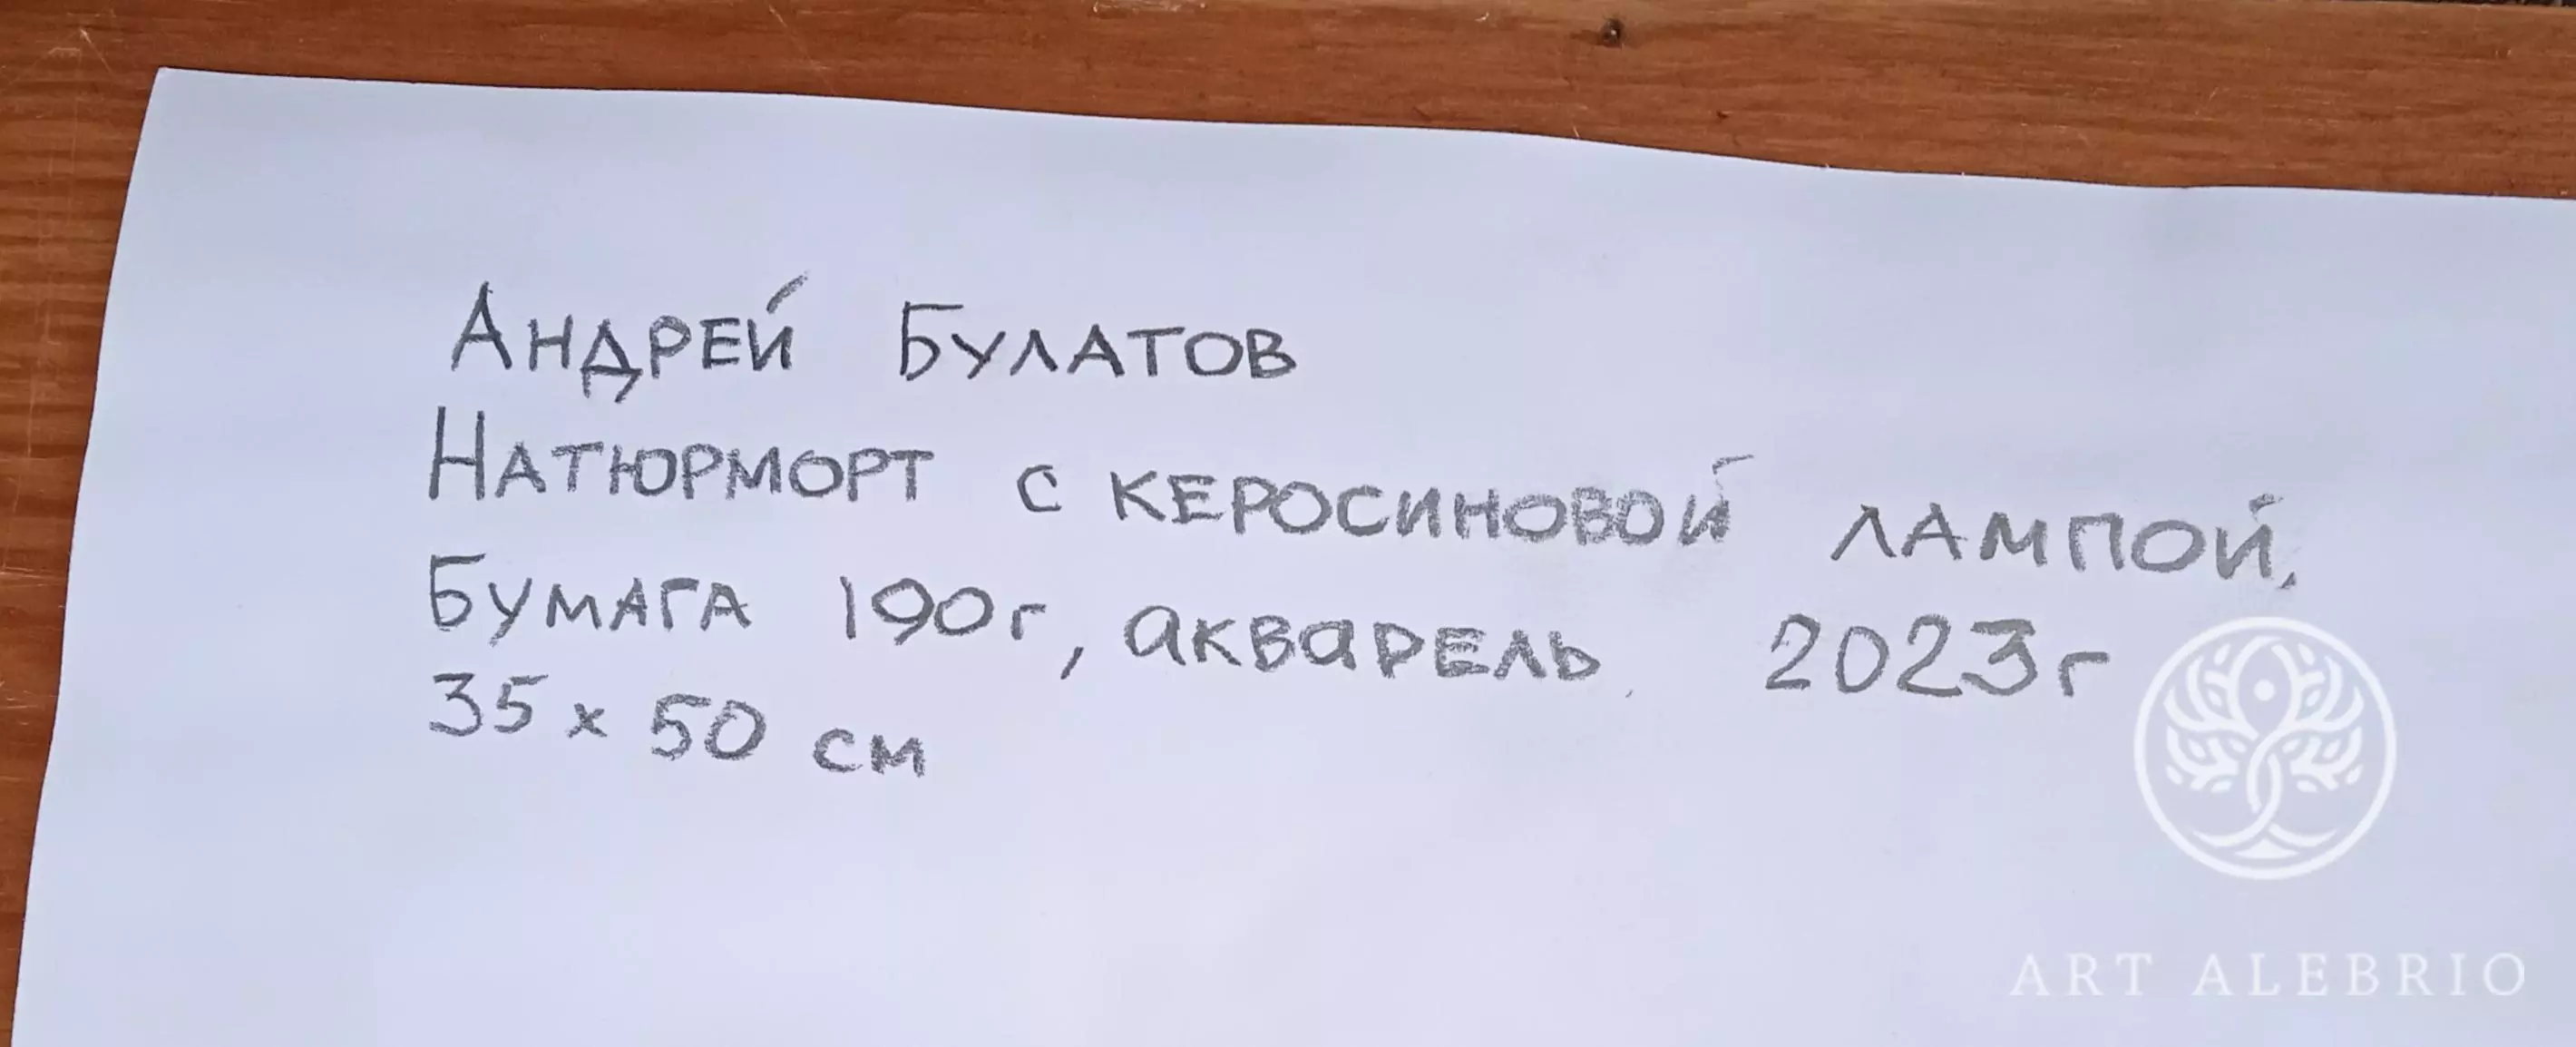 Андрей Булатов
Натюрморт с керосиновой лампой.
Бумага 190г, акварель. 2023г
35 х 50 см
ART ALEBRIO